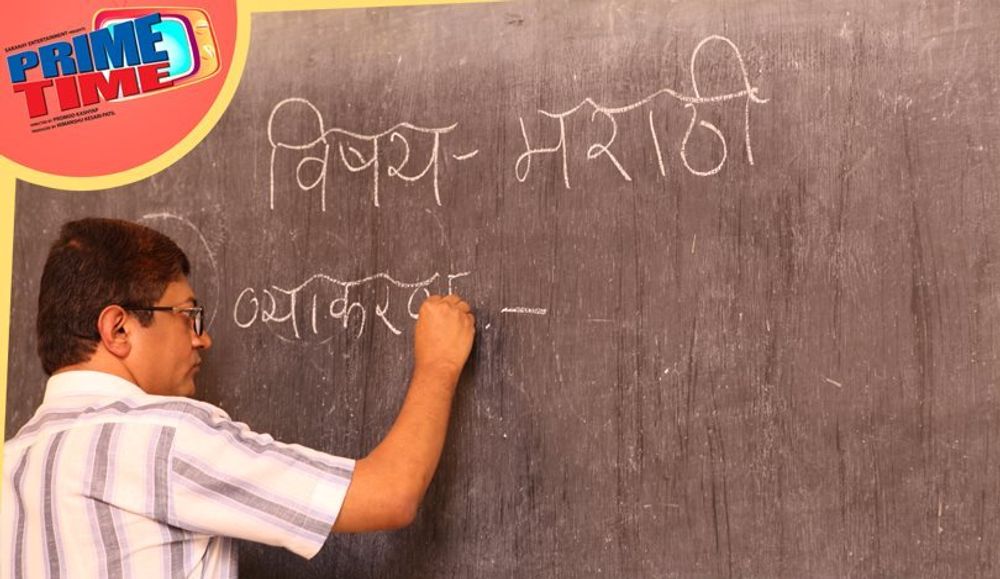 SARANSH ENTERTAINMENT PRESENTS
PRIME
TIME
DIRECTED BY PROMOD KASHYAP
PRODUCED BY HIMANSHU KESARI PATIL
विषय - मराठी
व्याकरण -